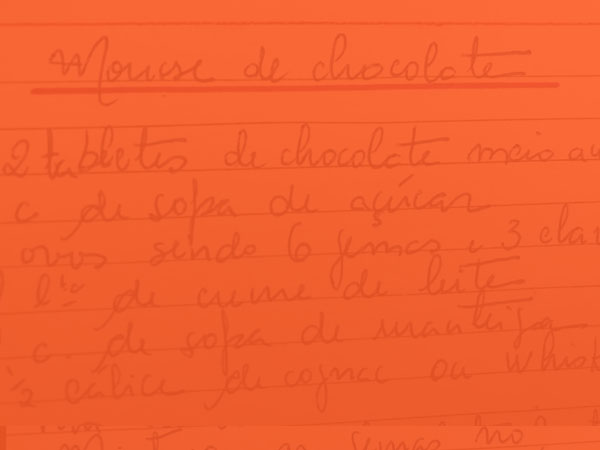 Mousse de chocolate
2 tabletes de chocolate meio
c de sopa de açúcar
ovos sendo 6 gemas e 3
de creme de leite
c. de sopa de manteiga
1/2 cálice de cognac ou
gemas no